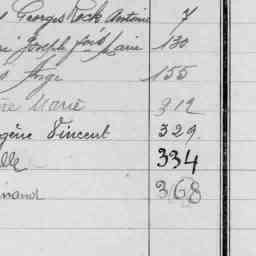 Georges Rock Antoine 7
Joseph Marie 130
Ange 155
Marie 212
gène Vincent 329
lle 334
nand 368